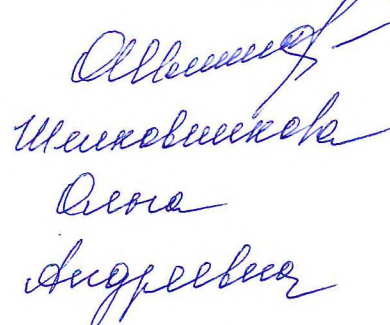 Шелковникова
Ольга
Андреевна